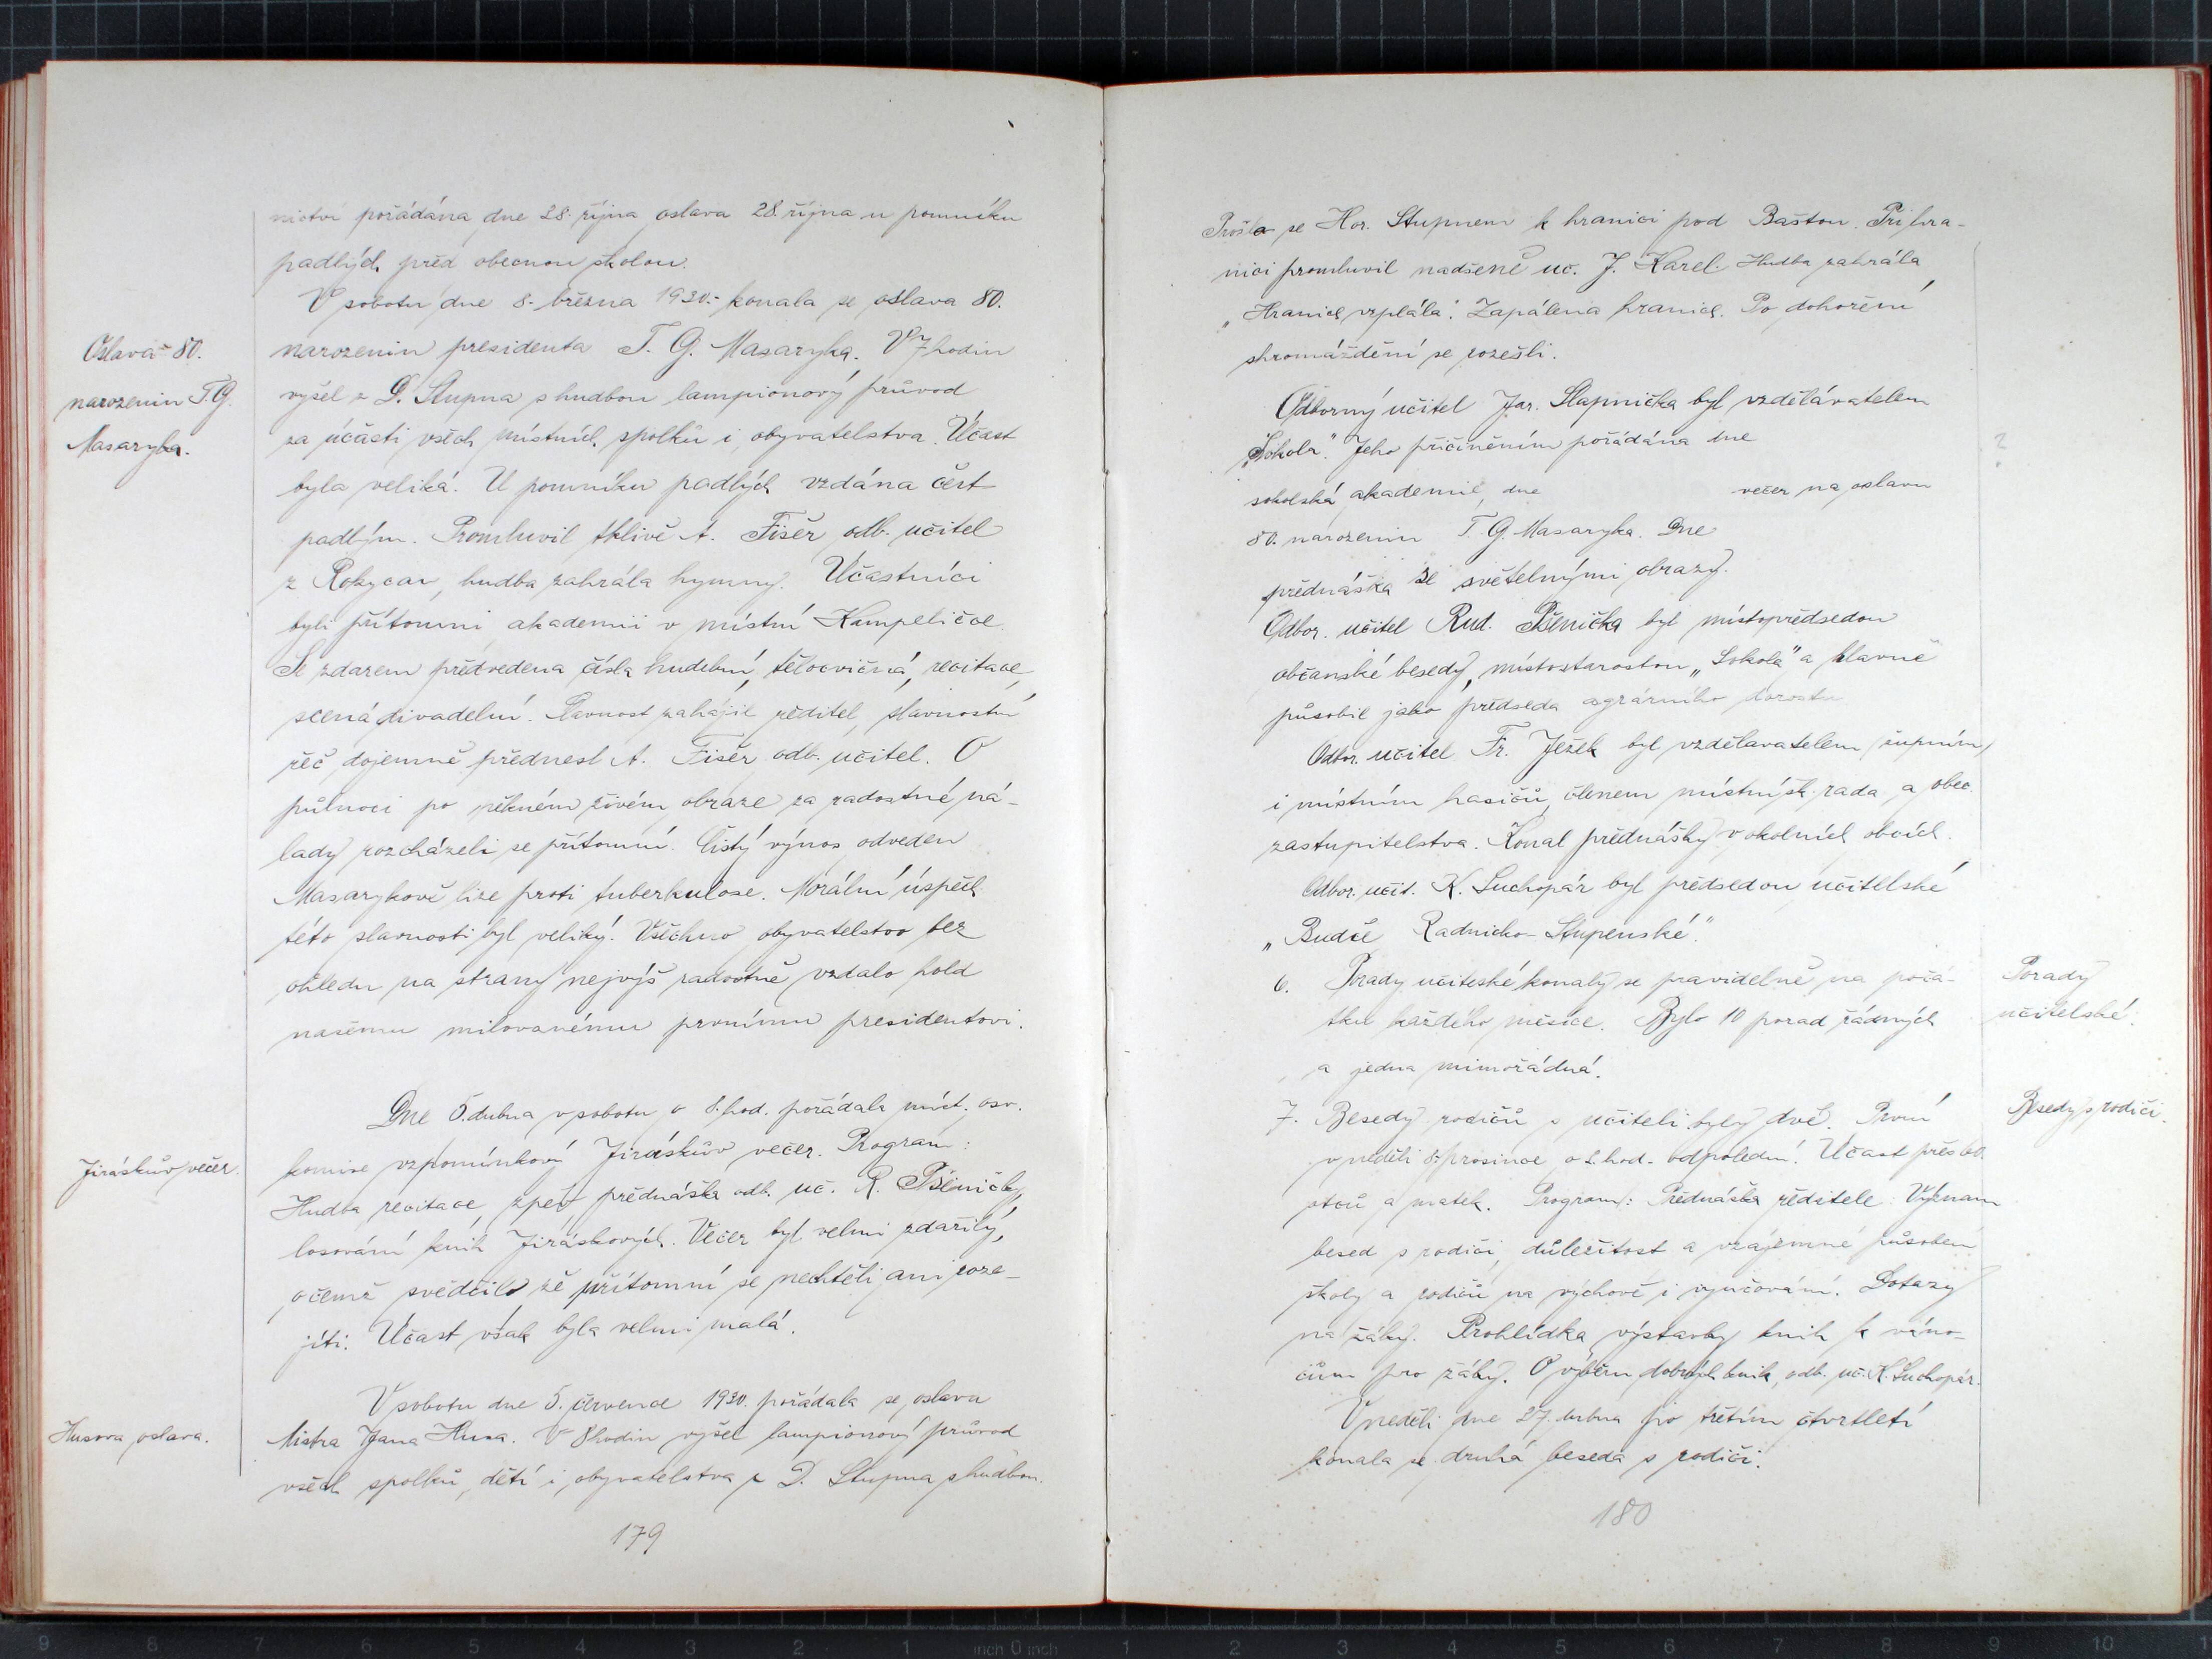 nictví pořádána dne 28. října oslava 28. října u pomníku
padlých před obecnou školou.
V sobotu dne 8. března 1930. konala se oslava 80.
Oslava 80.
narozenin T. G.
Masaryka.
narozenin presidenta T. G. Masaryka. V 7 hodin
vyšel z D. Stupna s hudbou lampionový průvod
za účasti všech místních spolků i obyvatelstva. Účast
byla veliká. U pomníku padlých vzdána čest
padlým. Promluvil tklivě A. Fišer odb. učitel
z Rokycan, hudba zahrála hymny. Účastníci
byli přítomni akademii v místní Kampeličce.
Se zdarem předvedena čísla hudební, tělocvičná, recitace,
scená divadelní. Slavnost zahájil ředitel, slavnostní
řeč dojemně přednesl A. Fišer odb. učitel. O
půlnoci po pěkném živém obraze za radostné ná-
lady rozcházeli se přítomní. Čistý výnos odveden
Masarykově lize proti tuberkulose. Morální úspěch
této slavnosti byl veliký. Všechno obyvatelstvo bez
ohledu na strany nejvýš radostně vzdalo hold
našemu milovanému prvnímu presidentovi.
Dne 5. dubna v sobotu o 8. hod. pořádala míst. osv.
Jiráskův večer.
komise vzpomínkový Jiráskův večer. Program:
Hudba recitace, zpěv, přednáška odb. uč. R. Pšeničky,
losování knih Jiráskových. Večer byl velmi zdařilý,
o čemž svědčilo že přítomní se nechtěli ani roze-
jíti. Účast však byla velmi malá.
V sobotu dne 5. července 1930. pořádala se oslava
Husova oslava.
Mistra Jana Husa. V 8 hodin vyšel lampionový průvod
všech spolků, dětí i obyvatelstva z D. Stupna s hudbou.
179
Prošlo se Hor. Stupnem k hranici pod Baštou. Při hra-
nici promluvil nadšeně uč. J. Karel. Hudba zahrála
„Hranice vzplála". Zapálena hranice. Po dohoření
shromáždění se rozešli.
Odborný učitel Jar. Slapnička byl vzdělávatelem
„Sokola." Jeho přičiněním pořádána dne
?
sokolská akademie, dne večer na oslavu
80. narozenin T. G. Masaryka. Dne
přednáška se světelnými obrazy.
Odbor. učitel Rud. Pšenička byl místopředsedou
občanské besedy, místostarostou „Sokola" a hlavně
působil jako předseda agrárního dorostu
Odbor. učitel Fr. Ježek byl vzdělavatelem župním
i místním hasičů, členem místní šk. rada a obec.
zastupitelstva. Konal přednášky v okolních obcích.
Odbor. učit. K. Suchopár byl předsedou učitelské
„Budče Radnicko-Stupenské."
6. Porady učiteské konaly se pravidelně na počá-
Porady
učitelské.
tku každého měsíce. Bylo 10 porad řádných
a jedna mimořádná.
7. Besedy rodičů s učiteli byly dvě. První
Besedy s rodiči.
v neděli 8. prosince o 2. hod. odpolední. Účast přes 60.
otců a matek. Program: Přednáška ředitele: Význam
besed s rodiči, důležitost a vzájemné působení
školy a rodičů na výchově i vyučování. Dotazy
na žáky. Prohlídka výstavky knih k váno-
cům pro žáky. O výběru dobrých knih, odb. uč. K. Suchopár.
V neděli dne 27. dubna po třetím čtvrtletí
konala se druhá beseda s rodiči.
180